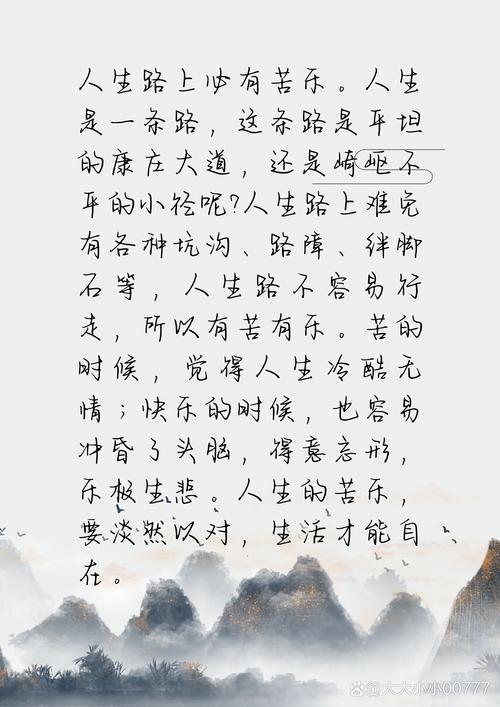 人生路上必有苦乐。人生
是一条路，这条路是平坦
的康庄大道，还是崎岖不
平的小径呢?人生路上难免
有各种坑沟、路障、绊脚
石等，人生路不容易行
走，所以有苦有乐。苦的
时候，觉得人生冷酷无
情；快乐的时候，也容易
冲昏了头脑，得意忘形，
乐极生悲。人生的苦乐，
要淡然以对，生活才能自
在。
Bai百科@大大小小00777